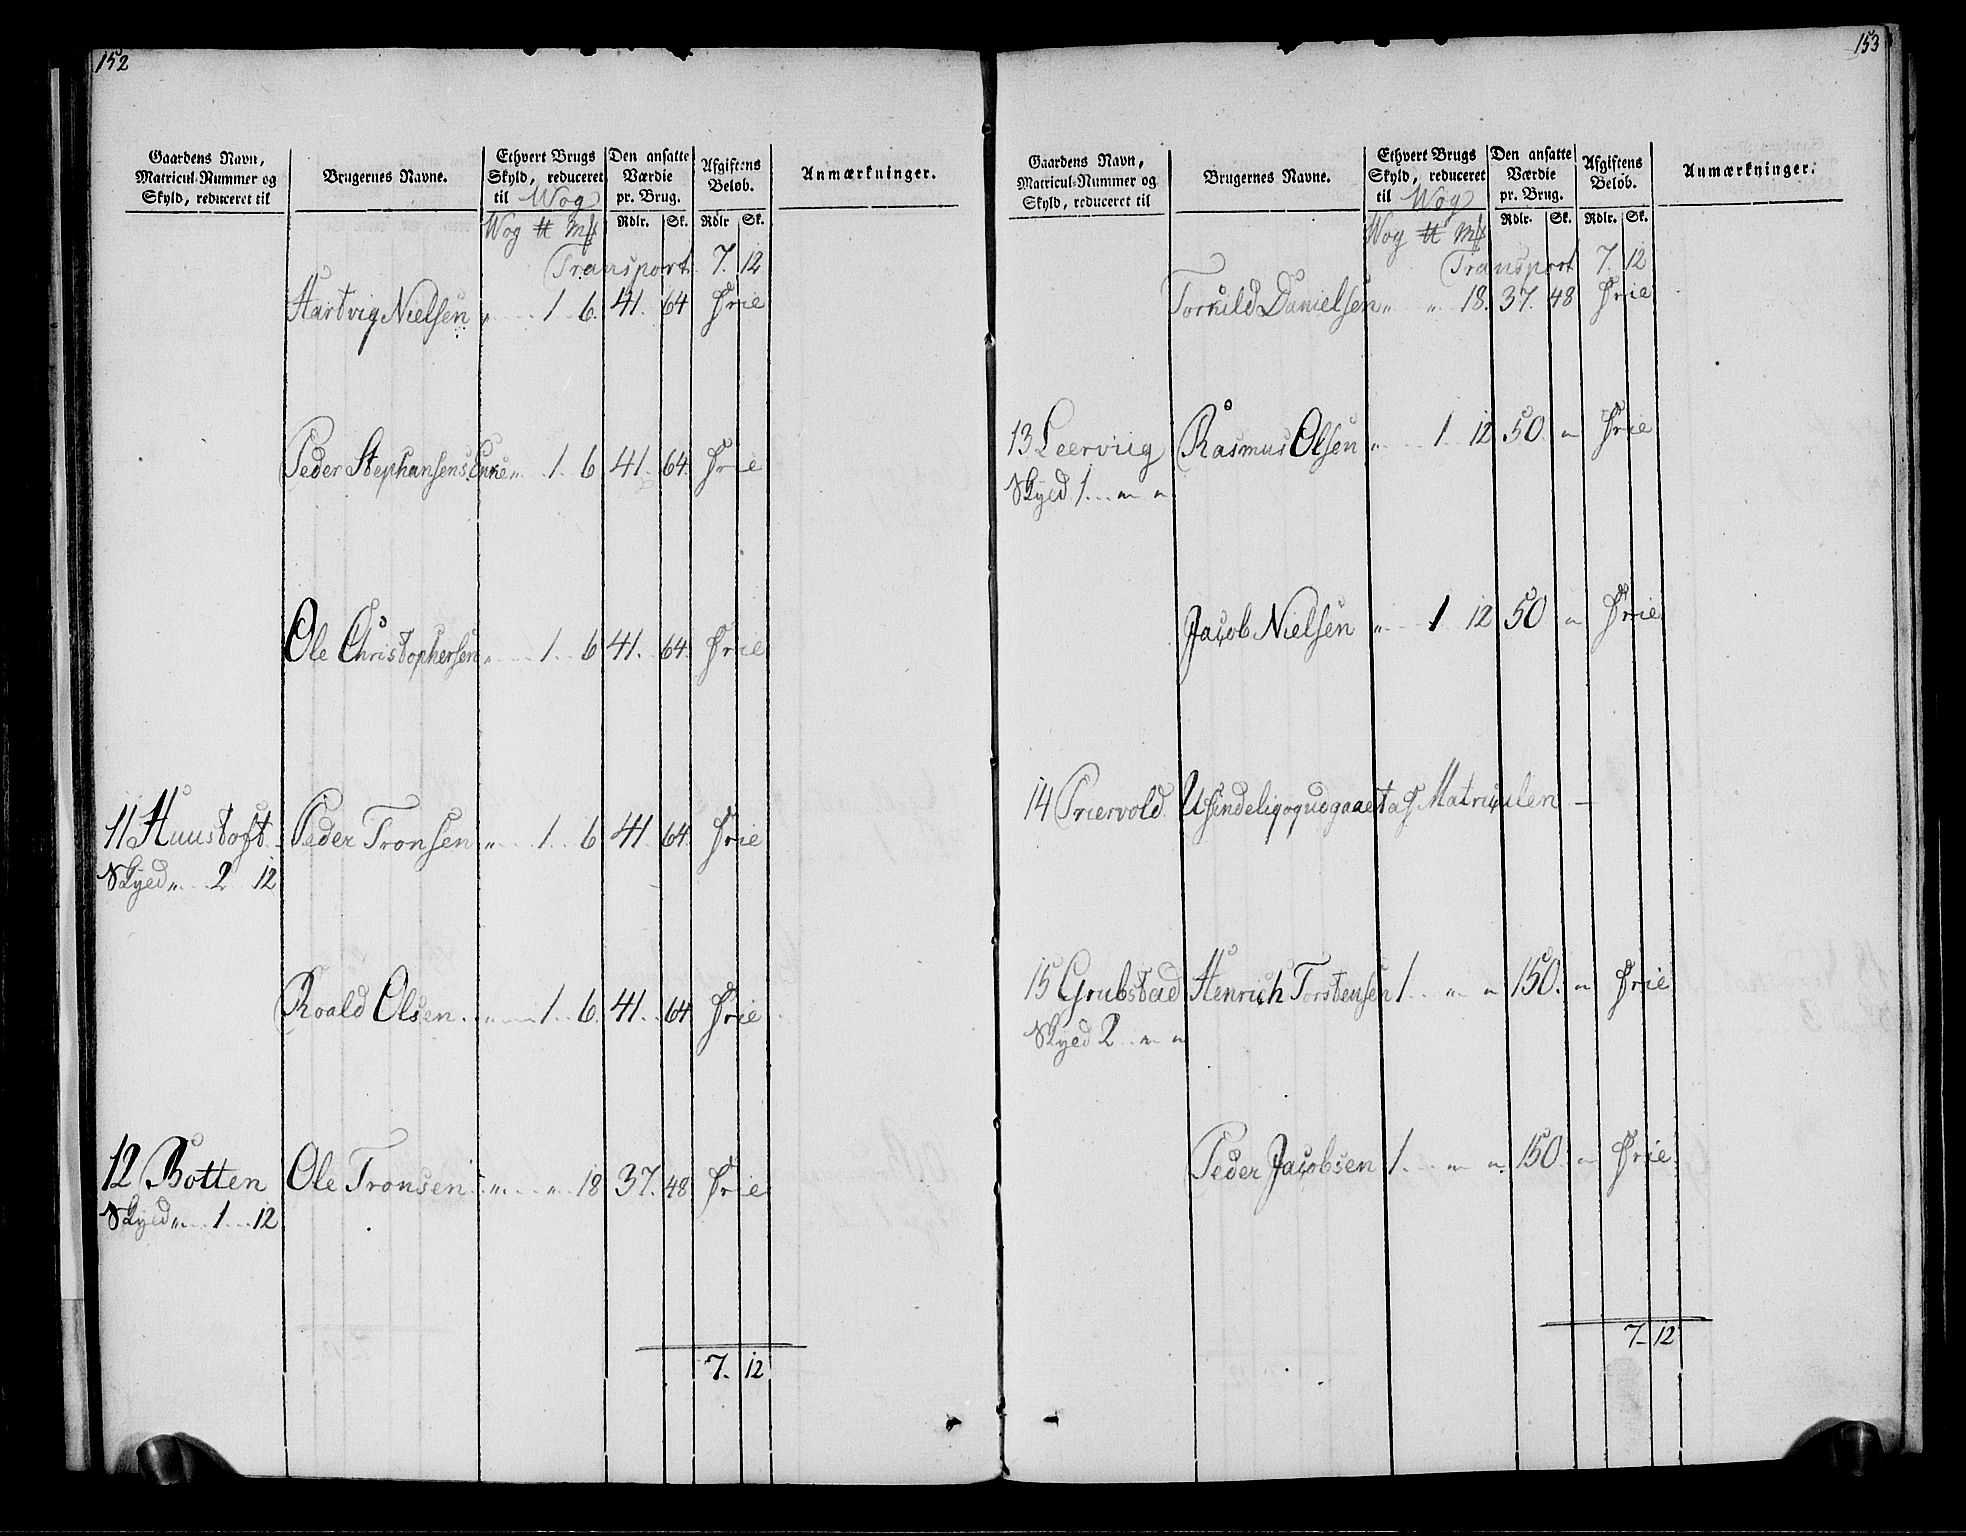 152
Gaardens Navn, Matricul-Nummer og Skyld, reduceret til
Brugernes Navne.
Ethvert Brugs Skyld, reduceret til Wog
Den ansatte Værdie pr. Brug.
Afgiftens Beløb.
Anmærkninger.
Wog ℔ Mk Rdlr. Sk. Rdlr Sk.
Transport 7. 12
Hartvig Nielsen „ 1 6. 41. 64 Frie
Peder Stephansens Enke „ 1. 6 41. 64. Frie
Ole Christophersen „ 1. 6 41. 64. Frie
11 Huustoft Peder Tronsen „ 1. 6 41. 64. Frie
Skyld „ 2 12
Roald Olsen „ 1 6. 41. 64 Frie
12 Botten Ole Tronsen „ „ 18 37. 48 Frie
Skyld „ 1 12
7. 12
153
Gaardens Navn, Matricul-Nummer og Skyld, reduceret til
Brugernes Navne.
Ethvert Brugs Skyld, reduceret til Wog
Den ansatte Værdie pr. Brug.
Afgiftens Beløb.
Anmærkninger.
Wog ℔ Mk Rdlr. Sk. Rdlr. Sk.
Transport 7. 12
Torkild Danielsen „ „ 18. 37. 48 Frie
13 Leerviig Rasmus Olsen „ 1. 12 50. „ Frie
Skyld 1 „ „
Jacob Nielsen „ 1 12 50 „ Frie
14 Friervold Usindelig og udgaaet af Matriculen —
15 Grubstad Henrich Torstensen 1 „ „ 150. „ Frie
Skyld 2 „ „
Peder Jacobsen 1 „ „ 150. „ Frie
7. 12